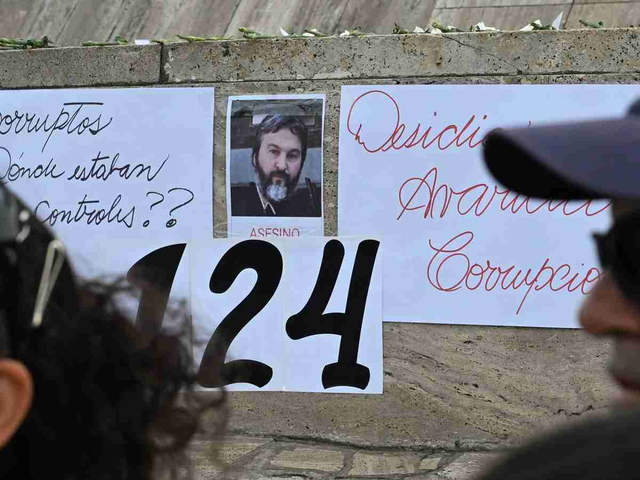 Corruptos
Dónde estaban
Controles??
ASESINO
124
Desidia
Avaricia
Corrupción